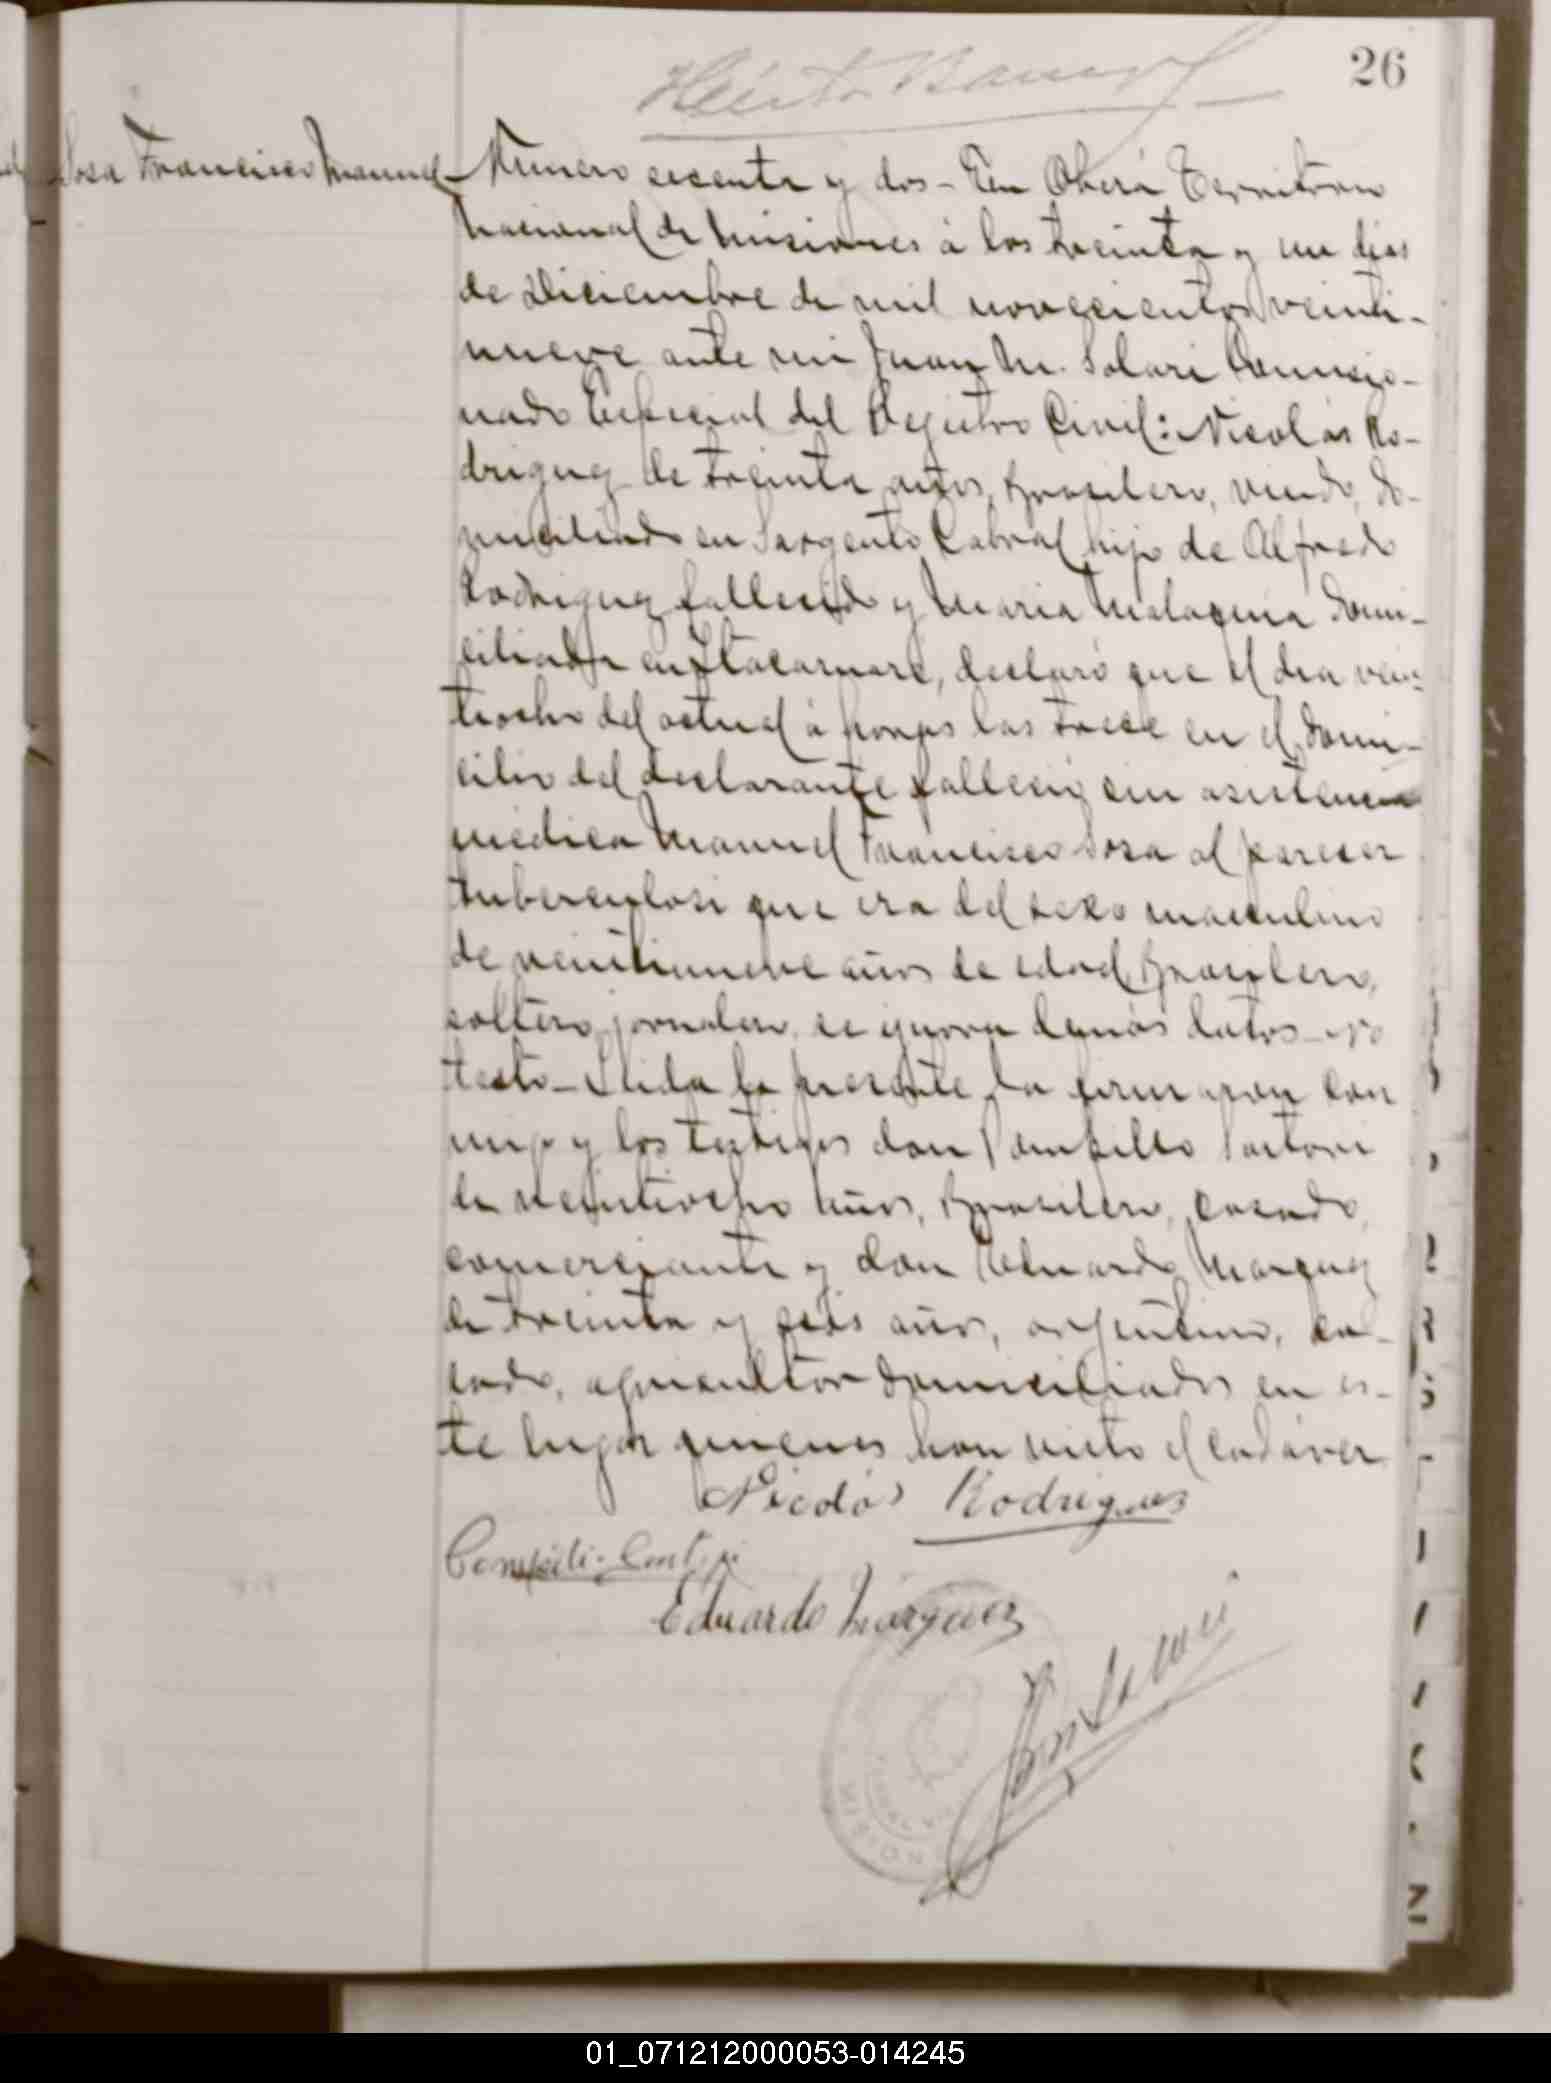 26
Hector Bar
Sosa Francisco Manuel
Numero sesenta y dos - En Oberá Territorio
Nacional de Misiones á los treinta y un dias
de Diciembre de mil novecientos veinti-
nueve ante mi Juan M. Solari Comisio-
nado Especial del Registro Civil: Nicolás Ro-
driguez de treinta años, Brasilero, viudo, do-
miciliado en Sargento Cabral hijo de Alfredo
Rodriguez fallecido y Maria domi-
ciliada en Itacaruaré, declaró que el dia vein-
tiocho del actual á horas las trece en el domi-
cilio del declarante falleció sin asistencia
médica Manuel Francisco Sosa al parecer
tuberculosi que era del sexo masculino
de veintinueve años de edad Brasilero,
soltero, jornalero, se ignora demás datos - No
testó - Leida la presente la firmaron con
migo y los testigos don
de veintiocho años, Brasilero, casado,
comerciante y don Eduardo Marquez
de treinta y seis años, argentino, ca-
sado, agricultor domiciliados en es-
te lugar quienes han visto el cadáver
Nicolás Rodrigues
Eduardo Márquez
MISIONES
01_071212000053-014245